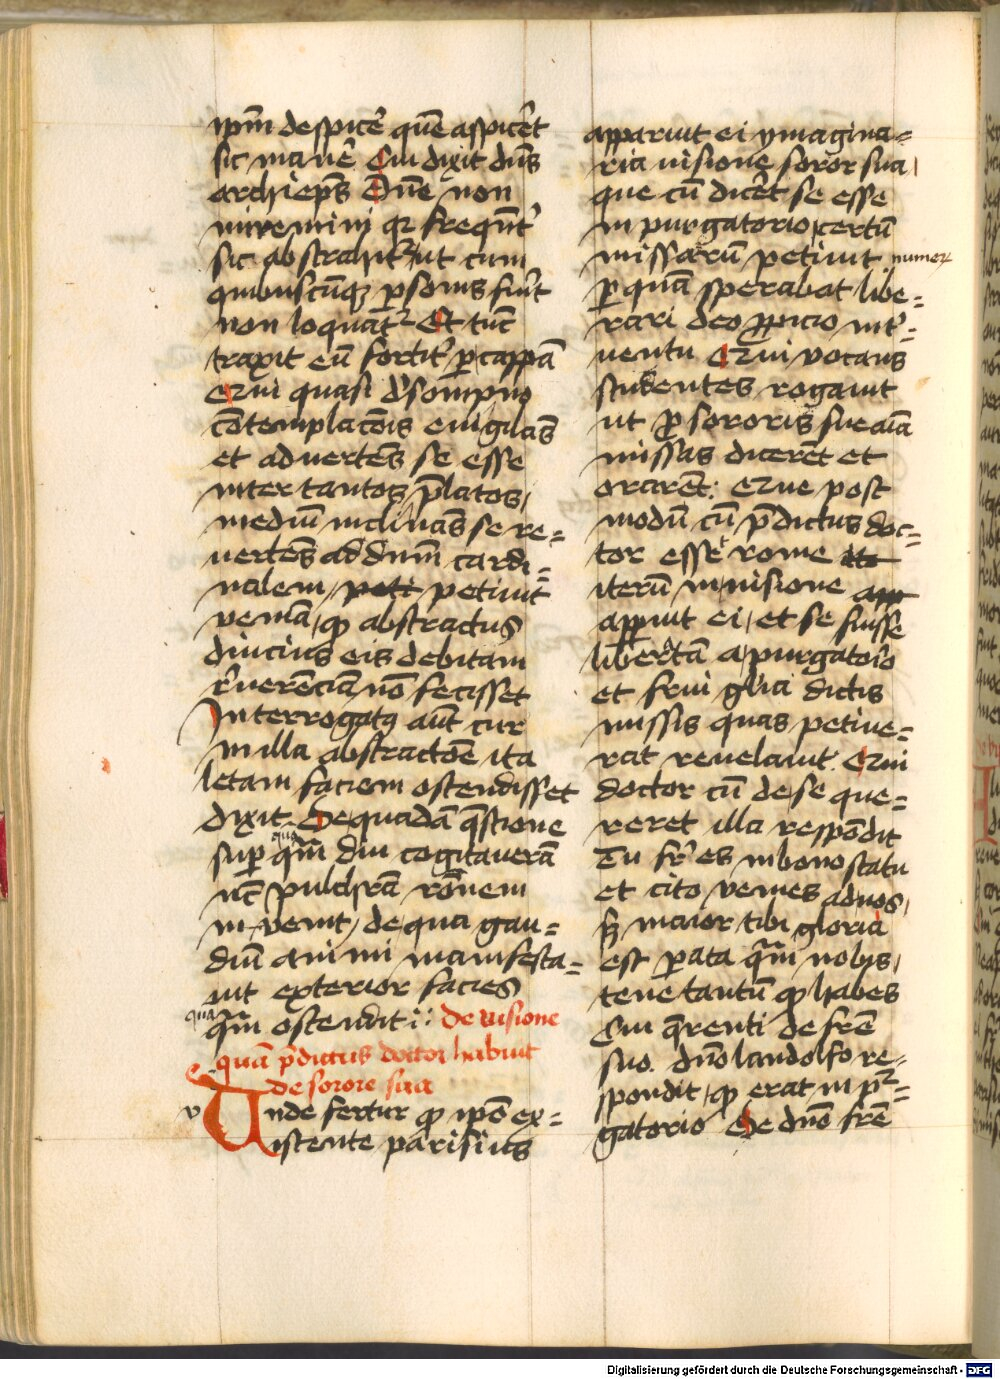 ipm̄ despicē quē aspicēt
sic manē Cui dixit dn̄s
archiep̄s Dn̄e non
miremini qꝛ frequēt̄
sic abstrahit᷑ ut cum
quibuscūqꝫ ꝑsonis fuīt
non loquat᷑ Et tūc
traxit eū fortit̄ ꝑ cappā
Qui quasi d̄ sompno
cōtemplacōis euigilās
et aduertēs se esse
inter tantos p̄latos,
mediū inclinās se re=
uertēs ad dn̄m cardi=
nalem, peti petiuit
veniā, ꝙ abstractus
diucius eis debitam
r̄uerēciā nō fecisset
Interrogatꝰ aūt cur
in illa abstractōe ita
letam faciem ostendisset
dixit De quadā q̄stione
suꝑ qua q̄m diu cogitauerā
nūc pulchrā rōnem
inuenit, de qua gau=
diū animi manifesta=
uit exterior facies
qua q̄m ostendit :: De uisione
quā p̄dictus doctor habuit
de sorore sua
v Unde fertur ꝙ ipō ex=
istente parisius
apparuit ei ymagina=
ria uisione soror sua,
que cū dicēt se esse
in purgatorio, certū
missarū petiuit numerꝫ
ꝑ quā sperabat libe=
rari deo ꝓpicio int̄=
uentu Qui vocans
studentes rogauit
ut ꝓ sororis sue aīa
missas dicerēt et
orarēt: Que post
modū cū p̄dictus doc=
tor esset rome ite
iterū in uisione app
appuit ei, et se fuisse
libertā a purgatorīo
et frui glīa dictis
missis quas petiue=
rat reuelauit. Qui
doctor cū de se que=
reret illa respōdit
Tu fr̄ es in bono statu
et cito venies ad nos,
sꝫ maior tibi gloria
est ꝑata q̄m nobis,
tene tantū ꝙ habes
Cui q̄renti de frē
suo. dn̄o landolfo re=
spondit, ꝙ erat in p᷑=
gatorio De dn̄o frē
Digitalisierung gefördert durch die Deutsche Forschungsgemeinschaft - DFG